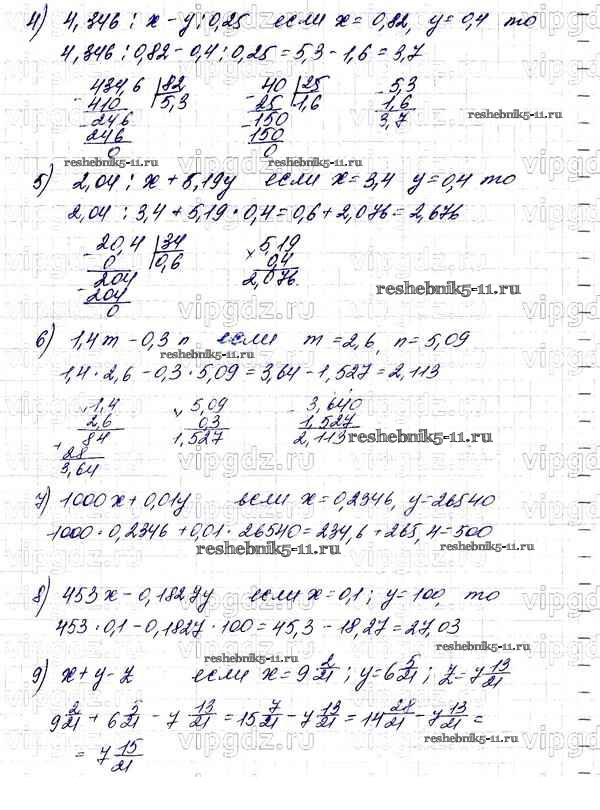 4) 4,346 : x - y : 0,25 если x = 0,82, y = 0,4 то
4,346 : 0,82 - 0,4 : 0,25 = 5,3 - 1,6 = 3,7
434,6 82 40 25 5,3
- 410 5,3 - 25 1,6 - 1,6
- 246 - 150 3,7
246 150
0 0
reshebnik5-11.ru reshebnik5-11.ru
5) 2,04 : x + 5,19y если x = 3,4 y = 0,4 то
2,04 : 3,4 + 5,19 · 0,4 = 0,6 + 2,076 = 2,676
- 20,4 34 × 5,19
0 0,6 0,4
- 204 2,076.
204
0
reshebnik5-11.ru
6) 1,4m - 0,3n если m = 2,6, n = 5,09
reshebnik5-11.ru
1,4 · 2,6 - 0,3 · 5,09 = 3,64 - 1,527 = 2,113
× 1,4 × 5,09 - 3,640
2,6 0,3 1,527
+ 84 1,527 2,113
28
3,64
reshebnik5-11.ru
7) 1000x + 0,01y если x = 0,2346, y = 26540
1000 · 0,2346 + 0,01 · 26540 = 234,6 + 265,4 = 500
reshebnik5-11.ru
8) 453x - 0,1827y если x = 0,1 ; y = 100, то
453 · 0,1 - 0,1827 · 100 = 45,3 - 18,27 = 27,03
reshebnik5-11.ru
9) x + y - z если x = 9 2/21 ; y = 6 5/21 ; z = 7 13/21
reshebnik5-11.ru
9 2/21 + 6 5/21 - 7 13/21 = 15 7/21 - 7 13/21 = 14 28/21 - 7 13/21 =
reshebnik5-11.ru
= 7 15/21
vipgdz.ru vipgdz.ru vipgdz.ru